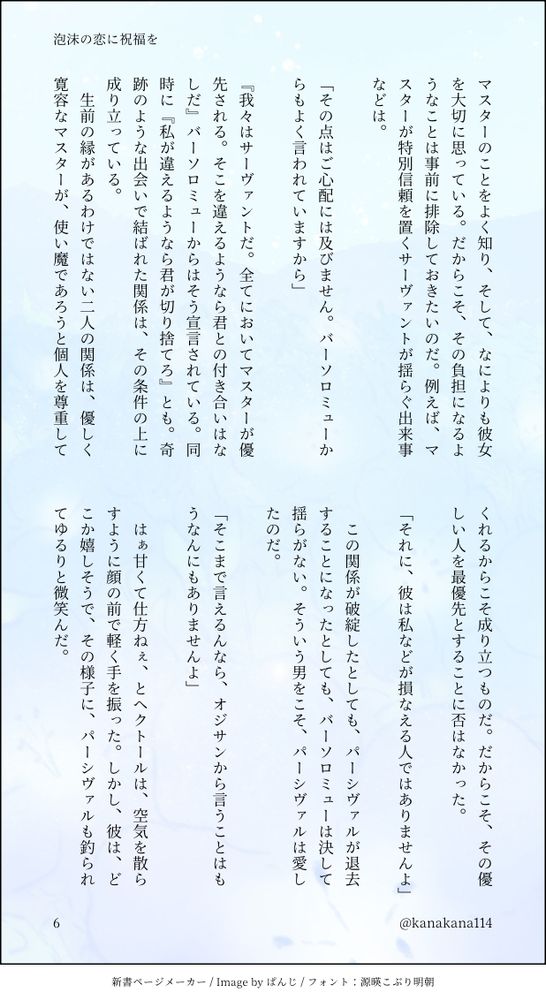 泡沫の恋に祝福を
マスターのことをよく知り、そして、なによりも彼女
を大切に思っている。だからこそ、その負担になるよ
うなことは事前に排除しておきたいのだ。例えば、マ
スターが特別信頼を置くサーヴァントが揺らぐ出来事
などは。
「その点はご心配には及びません。バーソロミューか
らもよく言われていますから」
『我々はサーヴァントだ。全てにおいてマスターが優
先される。そこを違えるようなら君との付き合いはな
しだ』バーソロミューからはそう宣言されている。同
時に『私が違えるようなら君が切り捨てろ』とも。奇
跡のような出会いで結ばれた関係は、その条件の上に
成り立っている。
生前の縁があるわけではない二人の関係は、優しく
寛容なマスターが、使い魔であろうと個人を尊重して
くれるからこそ成り立つものだ。だからこそ、その優
しい人を最優先とすることに否はなかった。
「それに、彼は私などが損なえる人ではありませんよ」
この関係が破綻したとしても、パーシヴァルが退去
することになったとしても、バーソロミューは決して
揺らがない。そういう男をこそ、パーシヴァルは愛し
たのだ。
「そこまで言えるんなら、オジサンから言うことはも
うなんにもありませんよ」
はぁ甘くて仕方ねぇ、とヘクトールは、空気を散ら
すように顔の前で軽く手を振った。しかし、彼は、ど
こか嬉しそうで、その様子に、パーシヴァルも釣られ
てゆるりと微笑んだ。
6
@kanakana114
新書ページメーカー / Image by ぱんじ / フォント：源暎こぶり明朝